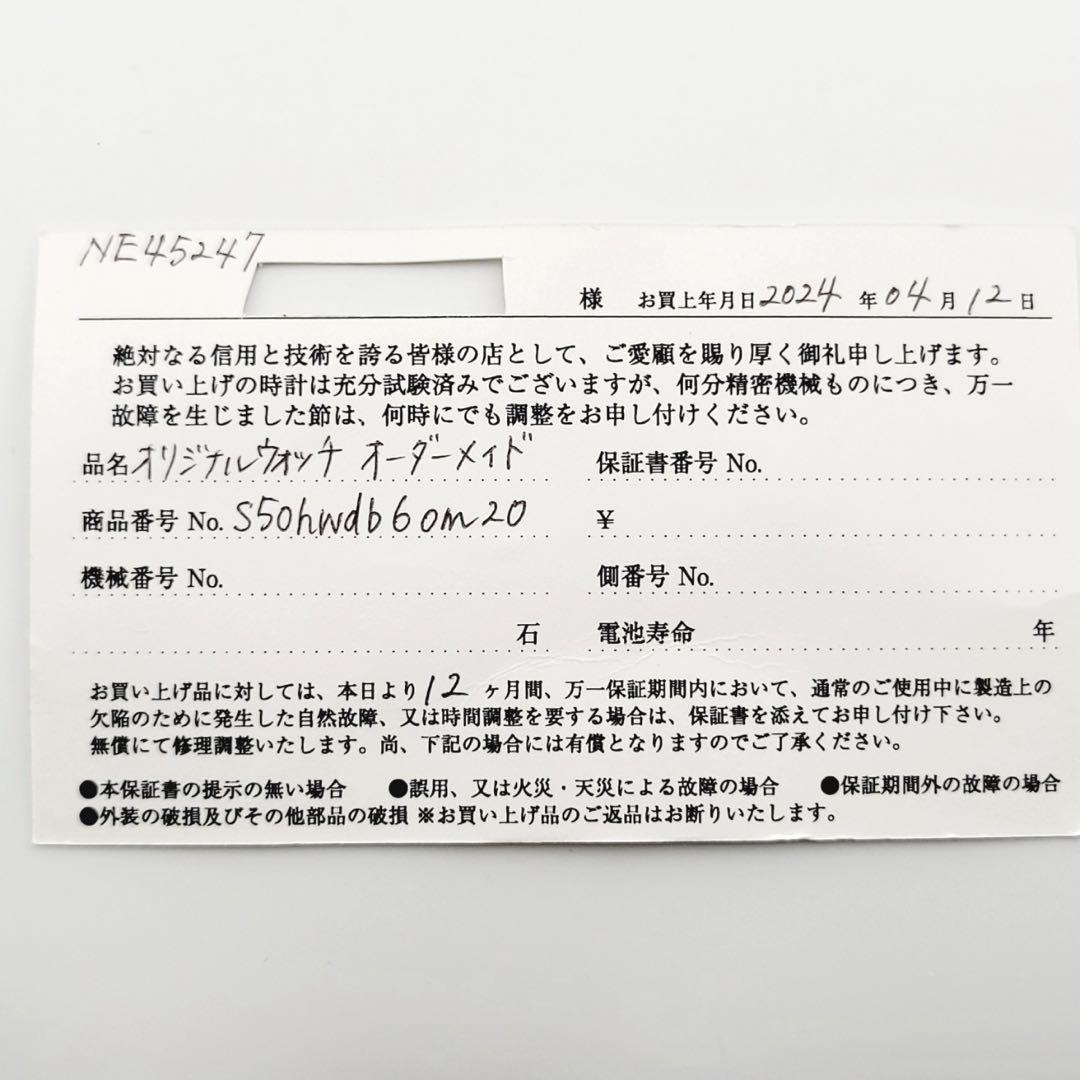 NE45247
様 お買上年月日2024年04月12日
絶対なる信用と技術を誇る皆様の店として、ご愛顧を賜り厚く御礼申し上げます。
お買い上げの時計は充分試験済みでございますが、何分精密機械ものにつき、万一
故障を生じました節は、何時にでも調整をお申し付けください。
品名オリジナルウォッチ オーダーメイド 保証書番号 No.
商品番号 No. S50hwdb60m20 ¥
機械番号 No. 側番号 No.
石 電池寿命 年
お買い上げ品に対しては、本日より12ヶ月間、万一保証期間内において、通常のご使用中に製造上の
欠陥のために発生した自然故障、又は時間調整を要する場合は、保証書を添えてお申し付け下さい。
無償にて修理調整いたします。尚、下記の場合には有償となりますのでご了承ください。
●本保証書の提示の無い場合 ●誤用、又は火災・天災による故障の場合 ●保証期間外の故障の場合
●外装の破損及びその他部品の破損 ※お買い上げ品のご返品はお断りいたします。